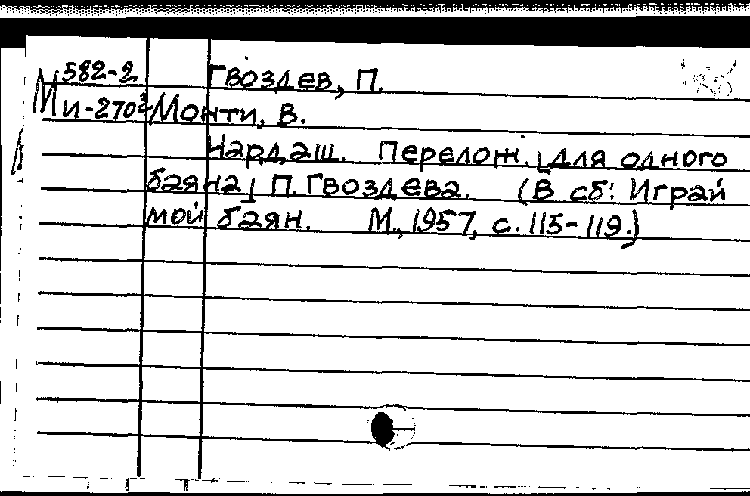 М 582-2 Гвоздев, П.
И-270² Монти, В.
Чардаш. Перелож. [для одного
баяна] П. Гвоздева. (В сб: Играй
мой баян. М., 1957, с. 115-119.)